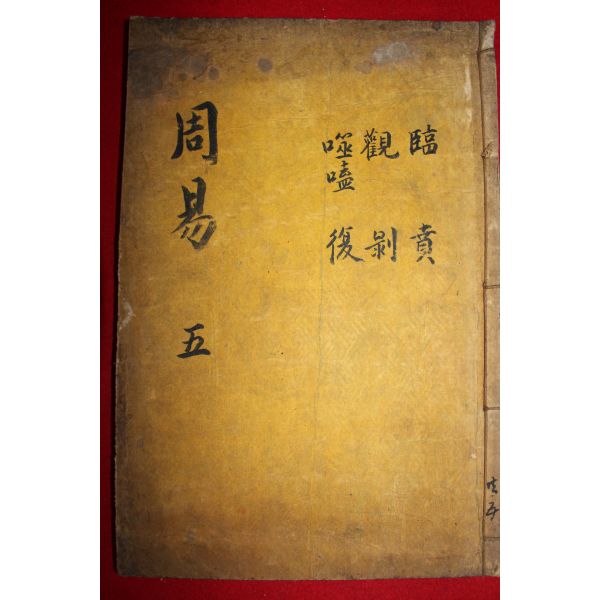 臨 賁
觀 剝
噬嗑 復
周易 五